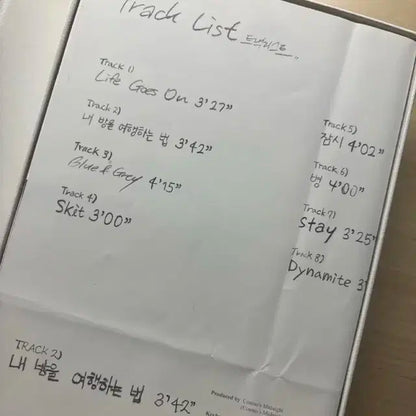 Track List 트랙리스트
Track 1)
Life Goes On 3'27"
Track 2)
내 방을 여행하는 법 3'42"
Track 3)
Blue & Grey 4'15"
Track 4)
Skit 3'00"
Track 5)
잠시 4'02"
Track 6)
병 4'00"
Track 7)
Stay 3'25"
Track 8)
Dynamite 3'
TRACK 2)
내 방을 여행하는 법 3'42"
Produced by Cosmo's Midnight
(Cosmo's Midnight